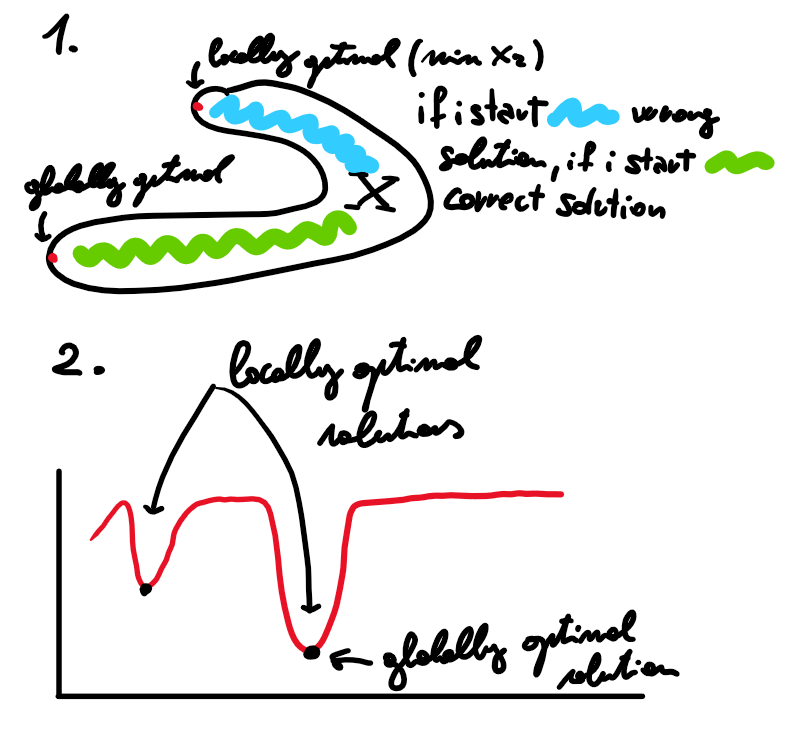 1.
locally optimal (min x₂)
if i start wrong
solution, if i start
correct solution
globally optimal
X
2.
locally optimal
solutions
globally optimal
solution